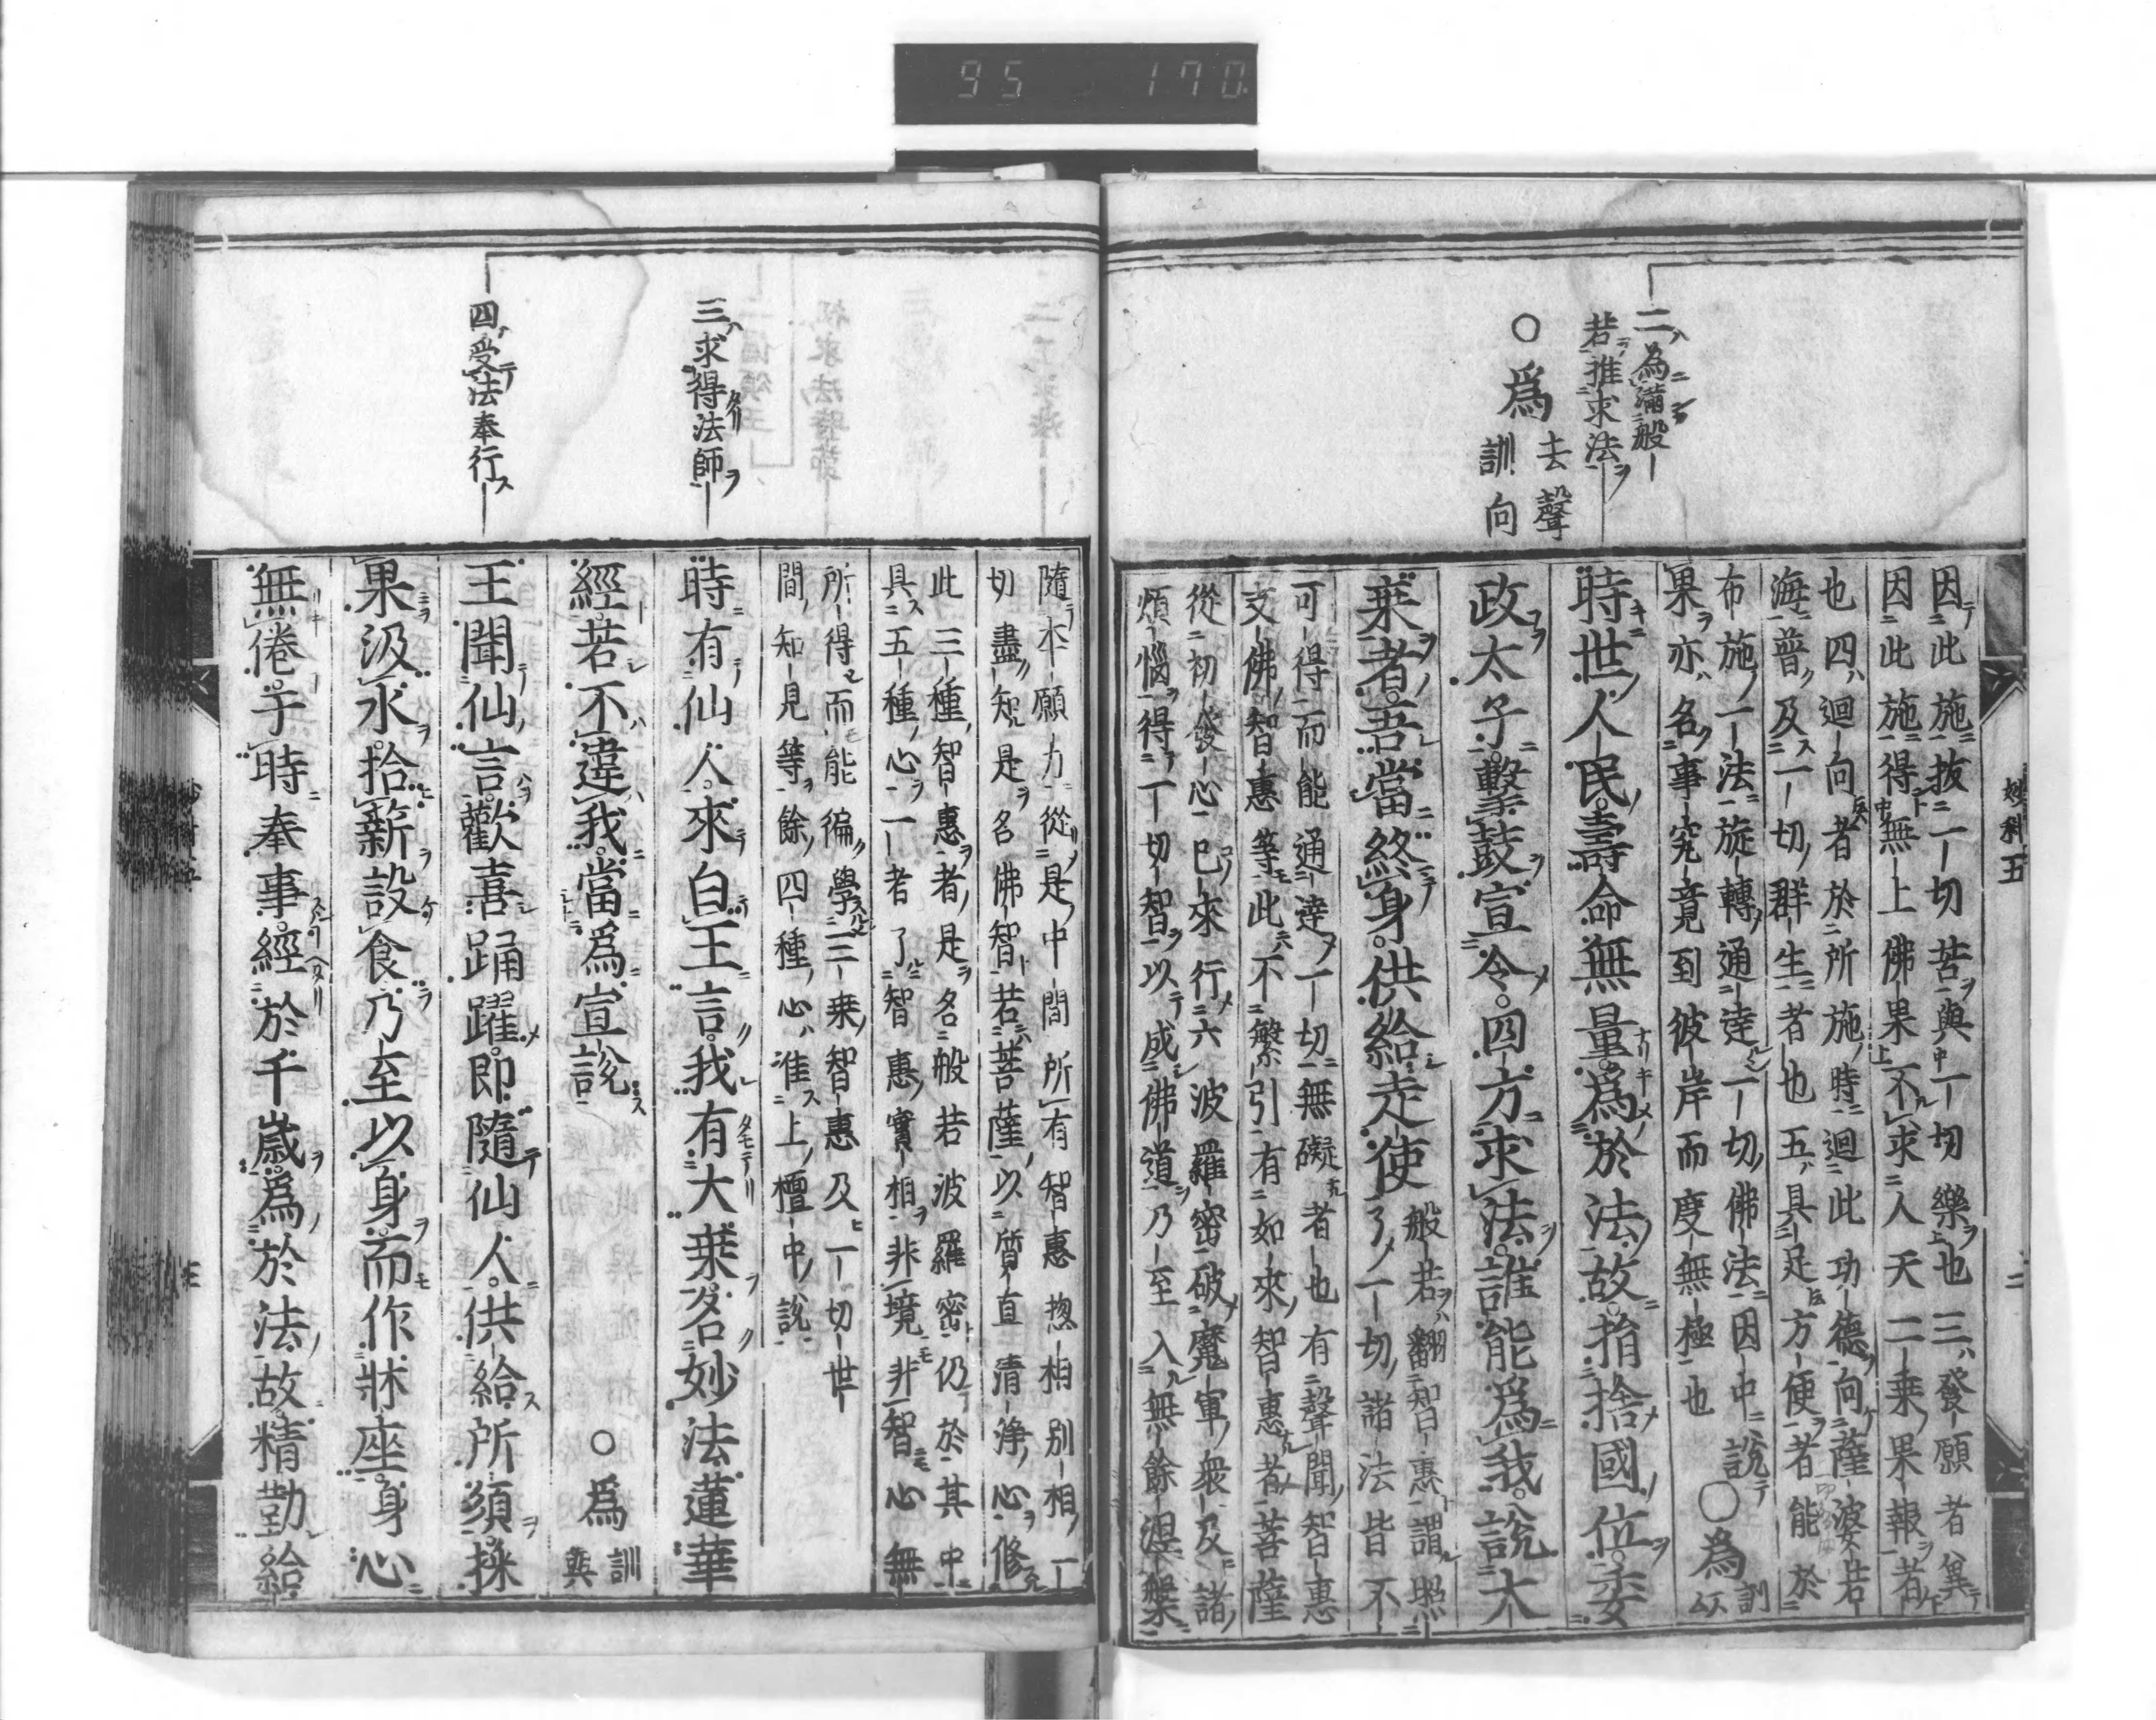 95 170
二為滿般
若推求法
〇爲去聲
訓向
因此施拔一切苦與一切樂也三發願者
因此施得無上佛果不求人天二乗果報者
也四迴向者於所施時迴此功德向薩婆若
海普及一切群生者也五具足方便者能於
布施一法旋轉通達一切佛法因中說
〇為訓
果亦名事究竟到彼岸而度無極也
時世人民壽命無量爲於法故捨國位委
政太子擊鼓宣令四方求法誰能爲我說大
乗者吾當終身供給走使
般若翻智惠謂照
了一切諸法皆不
可得而能通達一切無礙者也有聲聞智惠
支佛智惠等此不繁引有如來智惠者菩薩
從初發心已來行六波羅密破魔軍衆及諸
煩惱得一切智以成佛道乃至入無餘涅槃
妙科五
二
隨本願力從是中間所有智惠惣相別相一
切盡知是名佛智若菩薩以質直清淨心修
此三種智惠者是名般若波羅密仍於其中
具五種心一者了智惠實相非境非智心無
所得而能徧學三乗智惠及一切世
間知見等餘四種心准上檀中說
三求得法師
時有仙人來白王言我有大乗名妙法蓮華
經若不違我當爲宣說
〇爲訓
與
四受法奉行
王聞仙言歡喜踊躍即隨仙人供給所須採
果汲水拾薪設食乃至以身而作牀座身心
無倦于時奉事經於千歲爲於法故精勤給